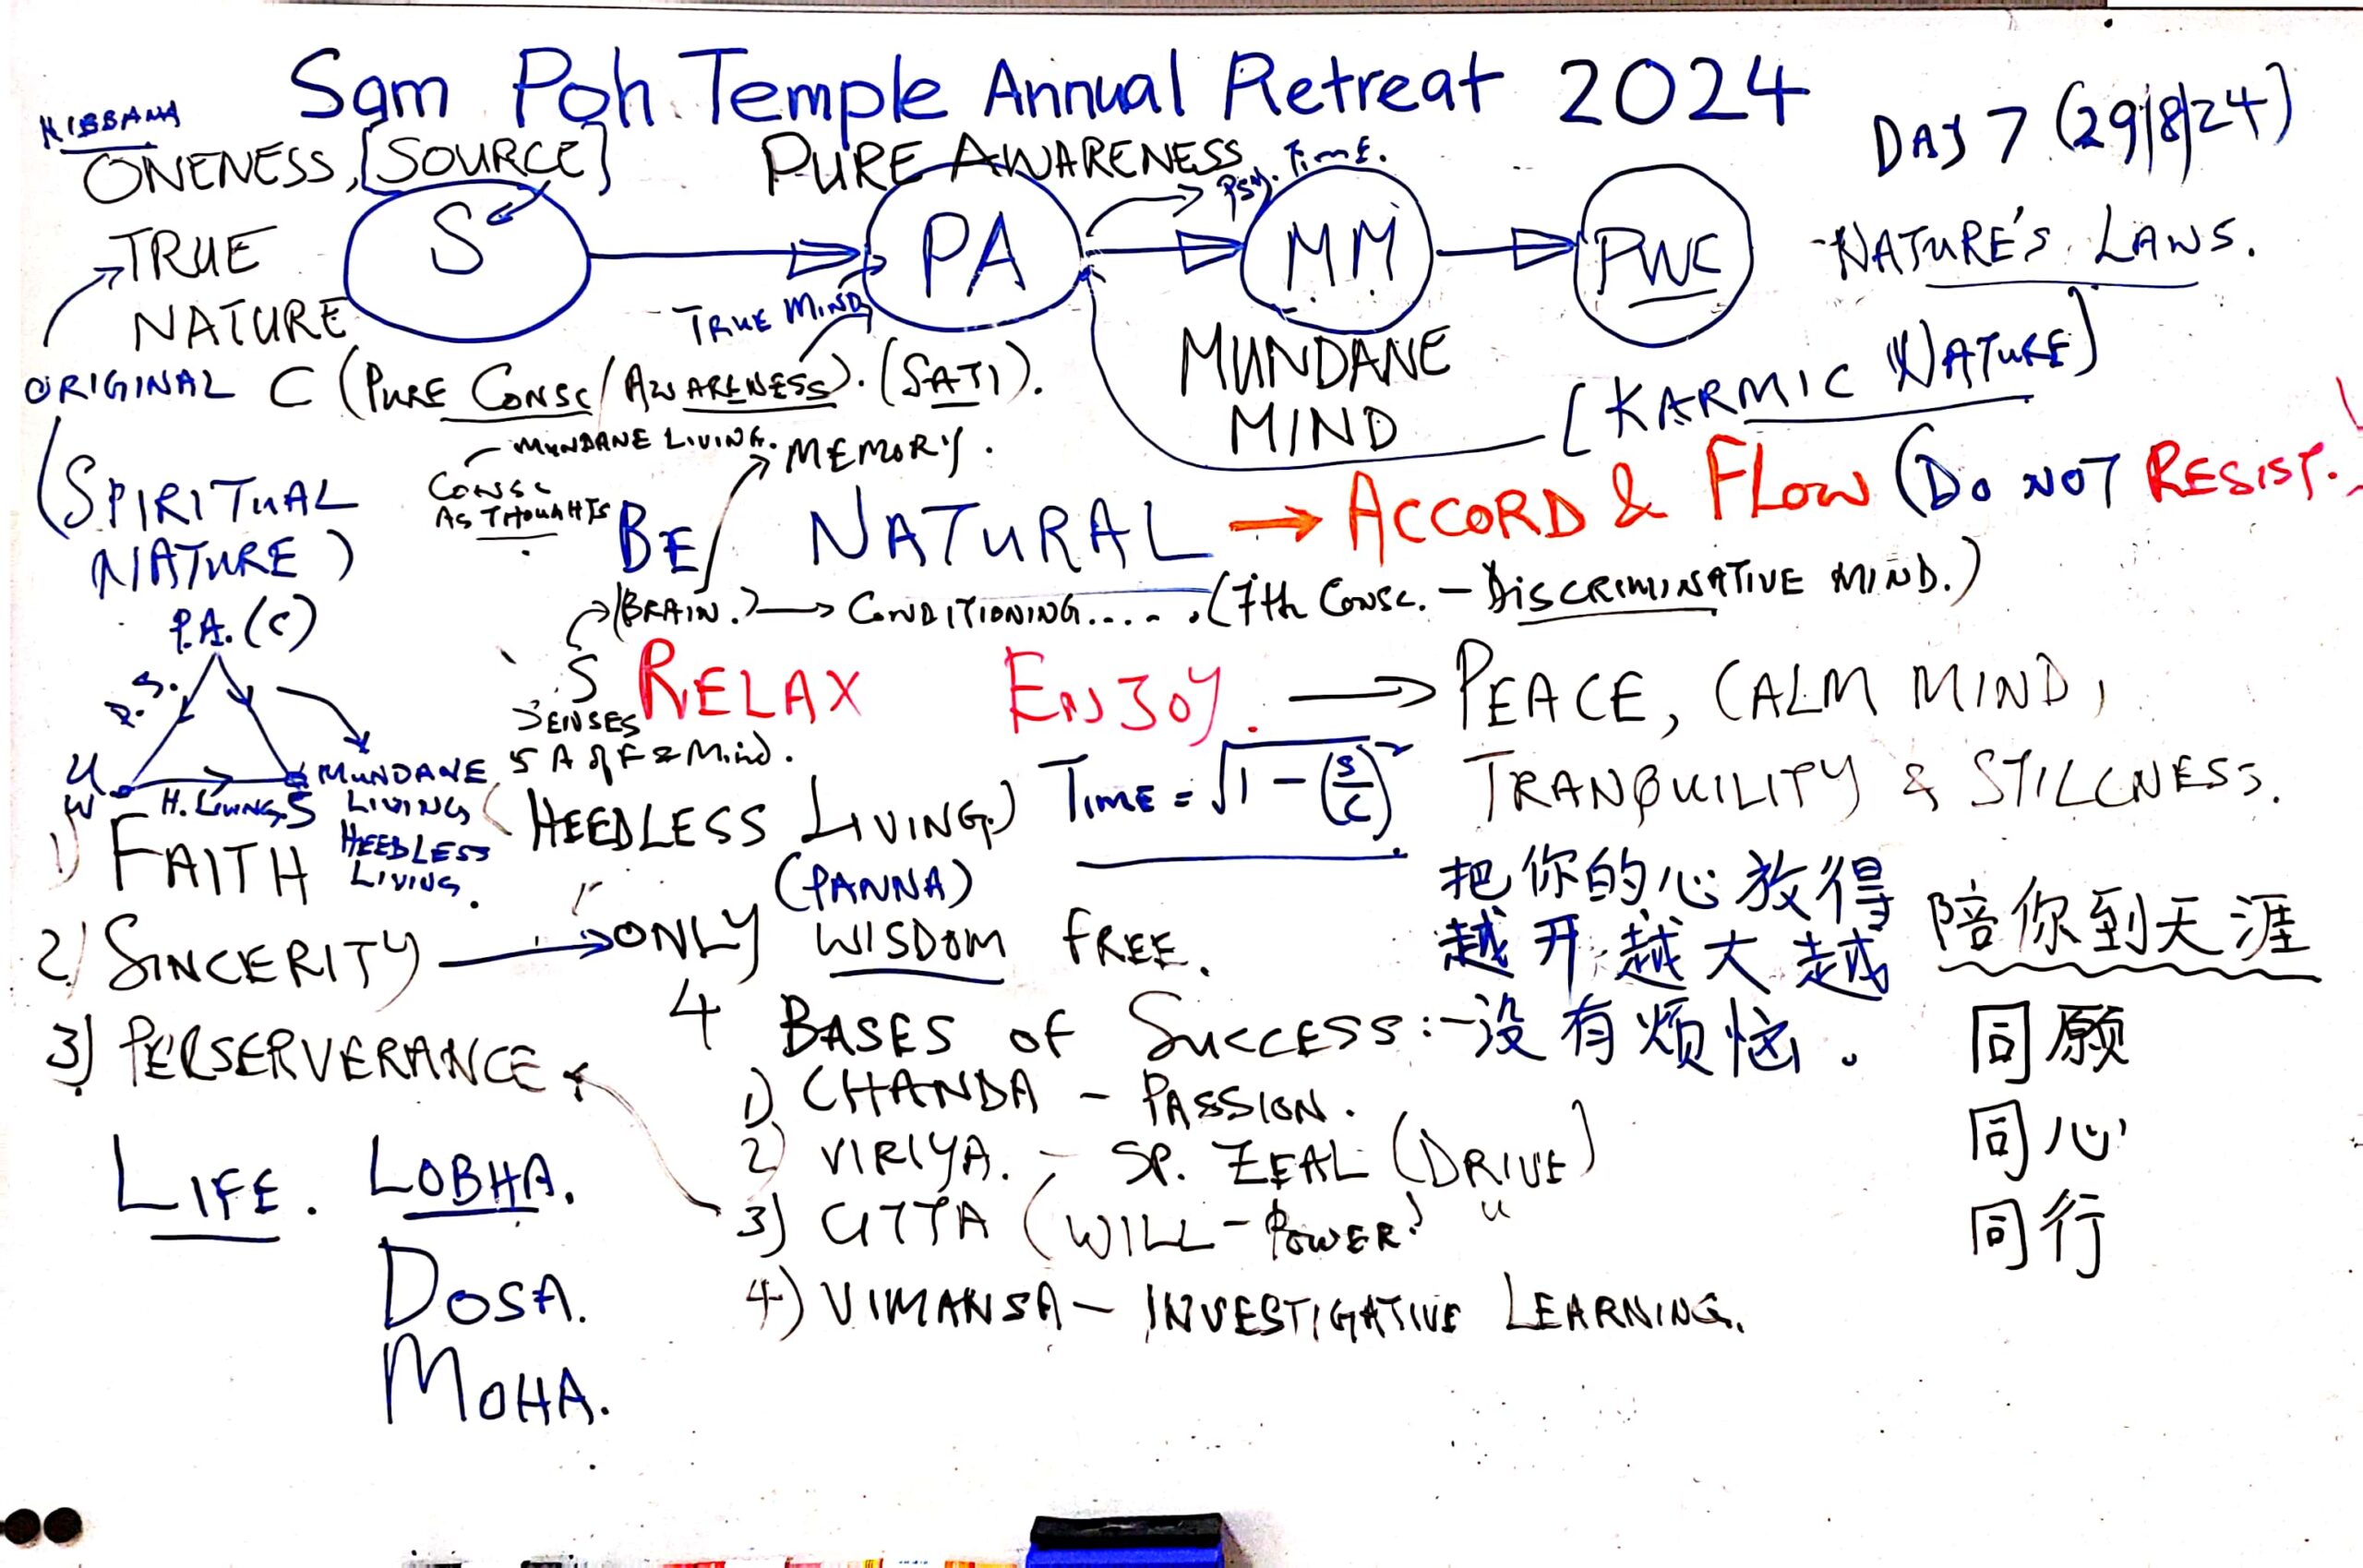 Sam Poh Temple Annual Retreat 2024
DAY 7 (29/8/24)
NIBBANA
ONENESS, [SOURCE]
PURE AWARENESS
PSY. TIME.
TRUE
NATURE
S
PA
MM
PWC
-NATURE'S LAWS.
TRUE MIND
MUNDANE
MIND
[KARMIC NATURE]
ORIGINAL C (PURE CONSC/AWARENESS). (SATI).
MUNDANE LIVING.
MEMORY.
(SPIRITUAL
NATURE)
CONSC
AS THOUGHTS
BE NATURAL → ACCORD & FLOW (DO NOT RESIST.
(BRAIN.) → CONDITIONING..... (7th CONSC. - DISCRIMINATIVE MIND.)
P.A. (C)
S.
U
W
H. LIVING
S
MUNDANE
LIVING
HEEDLESS
LIVING.
S
SENSES
5 A of F & Mind.
RELAX ENJOY. → PEACE, CALM MIND,
TRANQUILITY & STILLNESS.
(HEEDLESS LIVING.)
TIME = √1 - (S/C)²
1) FAITH
(PANNA)
2) SINCERITY → ONLY WISDOM FREE.
3) PERSERVERANCE
4 BASES OF SUCCESS:-
1) CHANDA - PASSION.
2) VIRIYA. - SP. ZEAL (DRIVE)
3) CITTA (WILL-POWER) "
4) VIMANSA - INVESTIGATIVE LEARNING.
把你的心放得
越开越大越
没有烦恼.
陪你到天涯
同愿
同心
同行
LIFE. LOBHA.
DOSA.
MOHA.